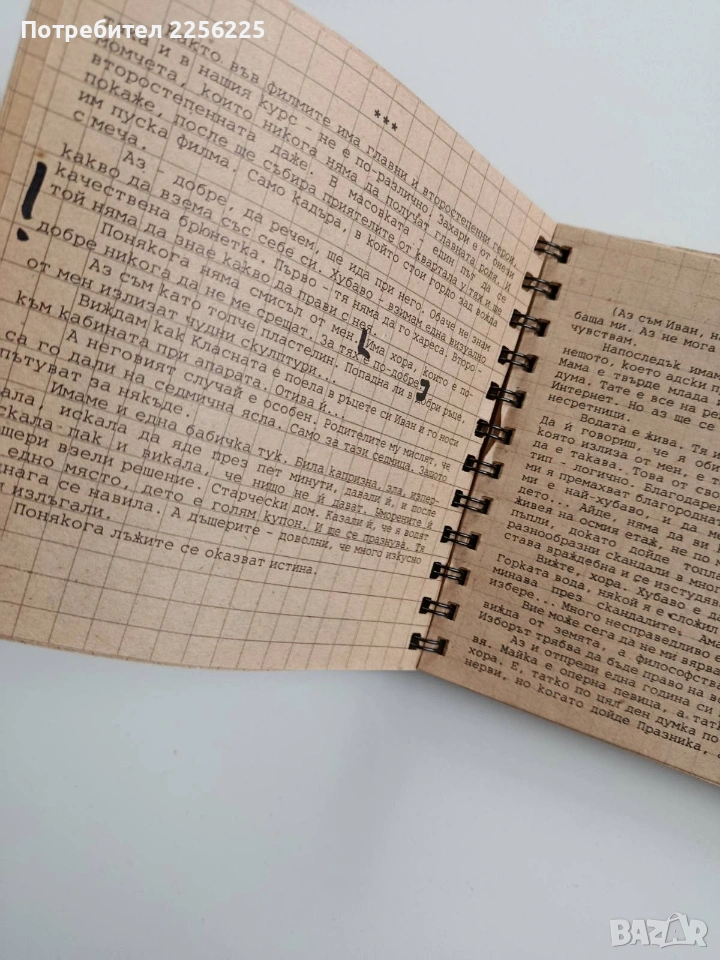 Потребител 2256225
***
както във филмите има главни и второстепенни герои,
ка и в нашия курс - не е по-различно. Захари е от онези
момчета, които никога няма да получат главната роля. И
второстепенната даже. В масовката ; един път да се
покаже, после ще събира приятелите от квартала у тях и ще
им пуска филма. Само кадъра, в който стои гордо зад вожда
с меча.
Аз - добре, да речем, ще ида при него. Обаче не знам
какво да взема със себе си. Хубаво - взимам една визуално
качествена брюнетка. Първо - тя няма да го хареса. Второ-
той няма да знае какво да прави с нея.
Понякога няма смисъл от мен. Има хора, които е по-
добре никога да не ме срещат. За тях е по-добре.
Аз съм като топче пластелин. Попадна ли в добри ръце,
от мен излизат чудни скулптури...
Виждам как Класната е поела в ръцете си Иван и го носи
към кабината при апарата. Отива й...
А неговият случай е особен. Родителите му мислят, че
са го дали на седмична ясла. Само за тази седмица. Защото
пътуват за някъде.
Имаме и една бабичка тук. Била капризна, зла, изпер-
кала, искала да яде през пет минути, давали й, и после
искала пак и викала, че нищо не й дават. Уморените й
дъщери взели решение. Старчески дом. Казали й, че я водят
на едно място, дето е голям купон. И ще се празнува. Тя
веднага се навила. А дъщерите - доволни, че много изкусно
я излъгали.
Понякога лъжите се оказват истина.
(Аз съм Иван, на
баща ми. Аз не мога
чувствам.
Напоследък имам
нещото, което адски п
Мама е твърде млада
дума. Тате е все на ре
Интернет. Но аз ще се
несретници.
Водата е жива. Тя и
Да й говориш, че я оби
която излиза от мен, е т
да е такава. Това от сво
тип - логично. Благодаре
ми я премахват благородна
ми е най-хубаво, и да м
дето... Айде, няма да ви л
живея на осмия етаж, не по м
пъпли, докато дойде топл
разнообразни скандали в мног
става враждебна и се изстудяв
Вижте, хора. Хубаво е да
Горката вода, някой я е сложил
минава през скандалите. Ама
избере... Много несправедливо е
Вие може сега да не ми вярва
вижда от земята, а философства
Изборът трябва да бъде право на во
Аз и отпреди една година си
вя. Майка е оперна певица, а татк
хора. Е, татко по цял ден думка по
нерви, но когато дойде Празника,
BAZAR